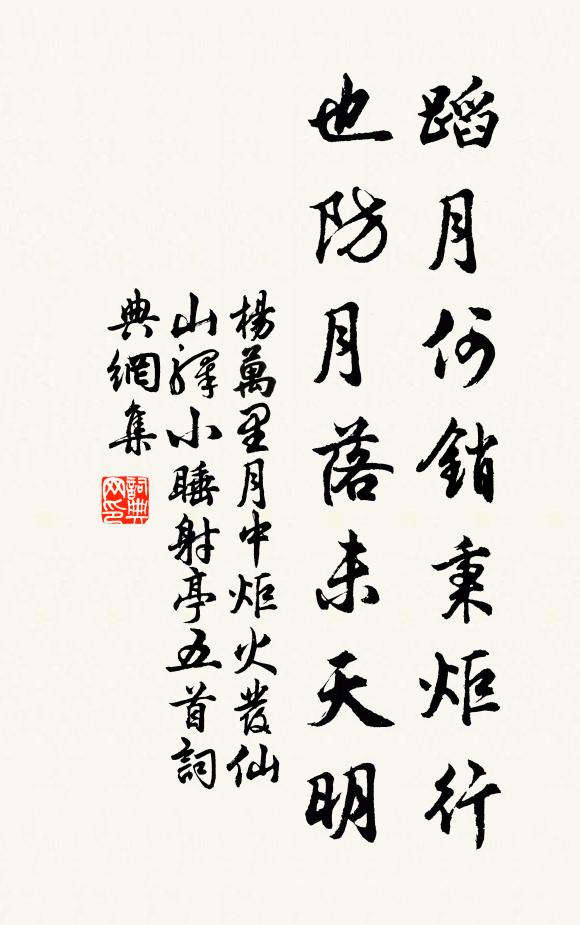 蹈月何銷秉炬行
也防月落未天明
楊萬里月中炬火發仙
山驛小睡射亭五首詞
典網集
詞典
网印